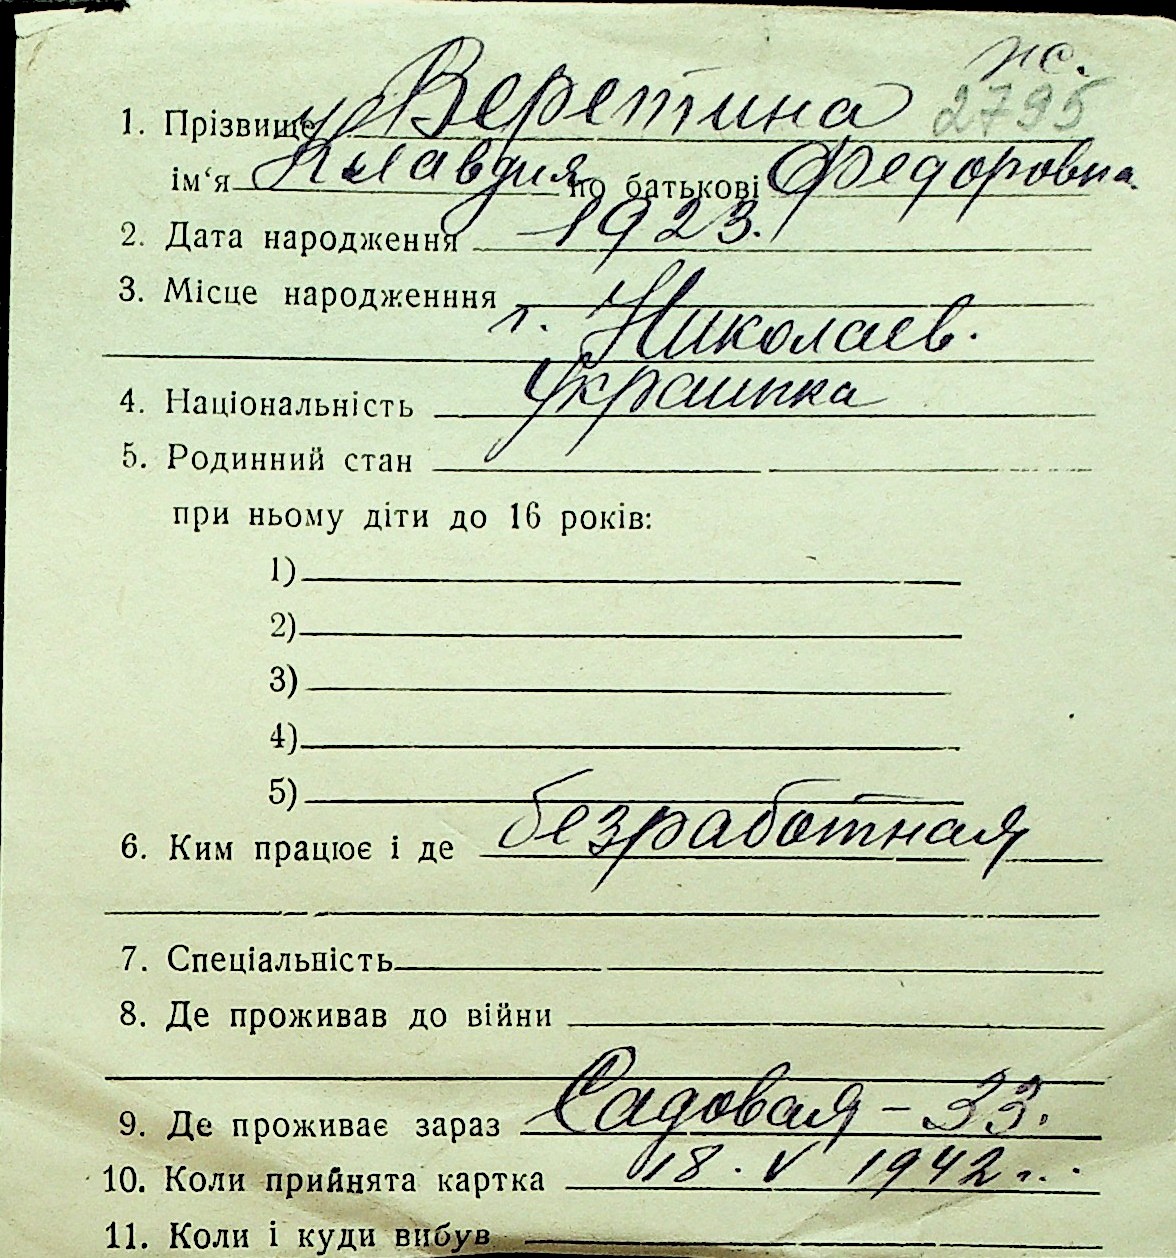 жс.
1. Прізвище Веретина 2795
ім‘я Клавдия по батькові Федоровна.
2. Дата народження 1923.
3. Місце народженння
г. Николаев.
4. Національність Украинка
5. Родинний стан
при ньому діти до 16 років:
1)
2)
3)
4)
5)
6. Ким працює і де безработная
7. Спеціальність
8. Де проживав до війни
9. Де проживає зараз Садовая – 33.
10. Коли прийнята картка 18. V 1942 г.
11. Коли і куди вибув